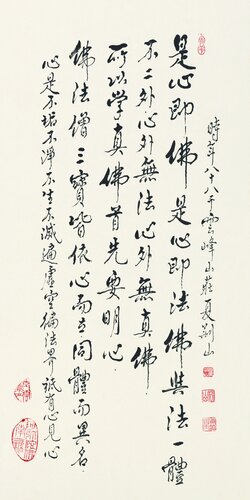 是心即佛是心即法佛與法一體
不二外心外無法心外無真佛
所以学真佛首先要明心
佛法僧三寶皆依心而立同體而異名
心是不垢不淨不生不滅遍虛空徧法界祇有心見心
時年八十八于雲峰山莊夏荆山